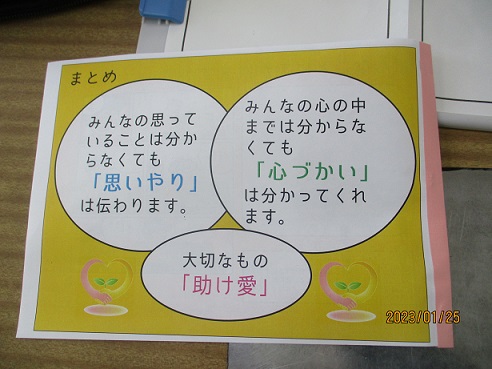 まとめ
みんなの思って
いることは分か
らなくても
「思いやり」
は伝わります。
みんなの心の中
までは分からな
くても
「心づかい」
は分かってくれ
ます。
大切なもの
「助け愛」
2023/01/25